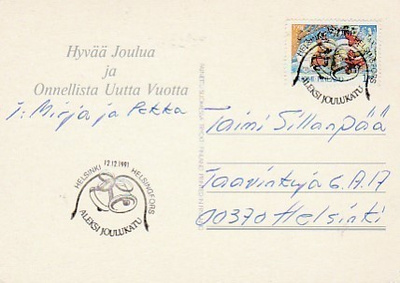 Hyvää Joulua
ja
Onnellista Uutta Vuotta
T: Mirja ja Pekka
12.12.1991
HELSINKI HELSINGFORS
ALEKSI JOULUKATU
HELSINKI HELSINGFORS
ALEKSI JOULUKATU
Taimi Sillanpää
Taavinkuja 6.A.17
00370 Helsinki